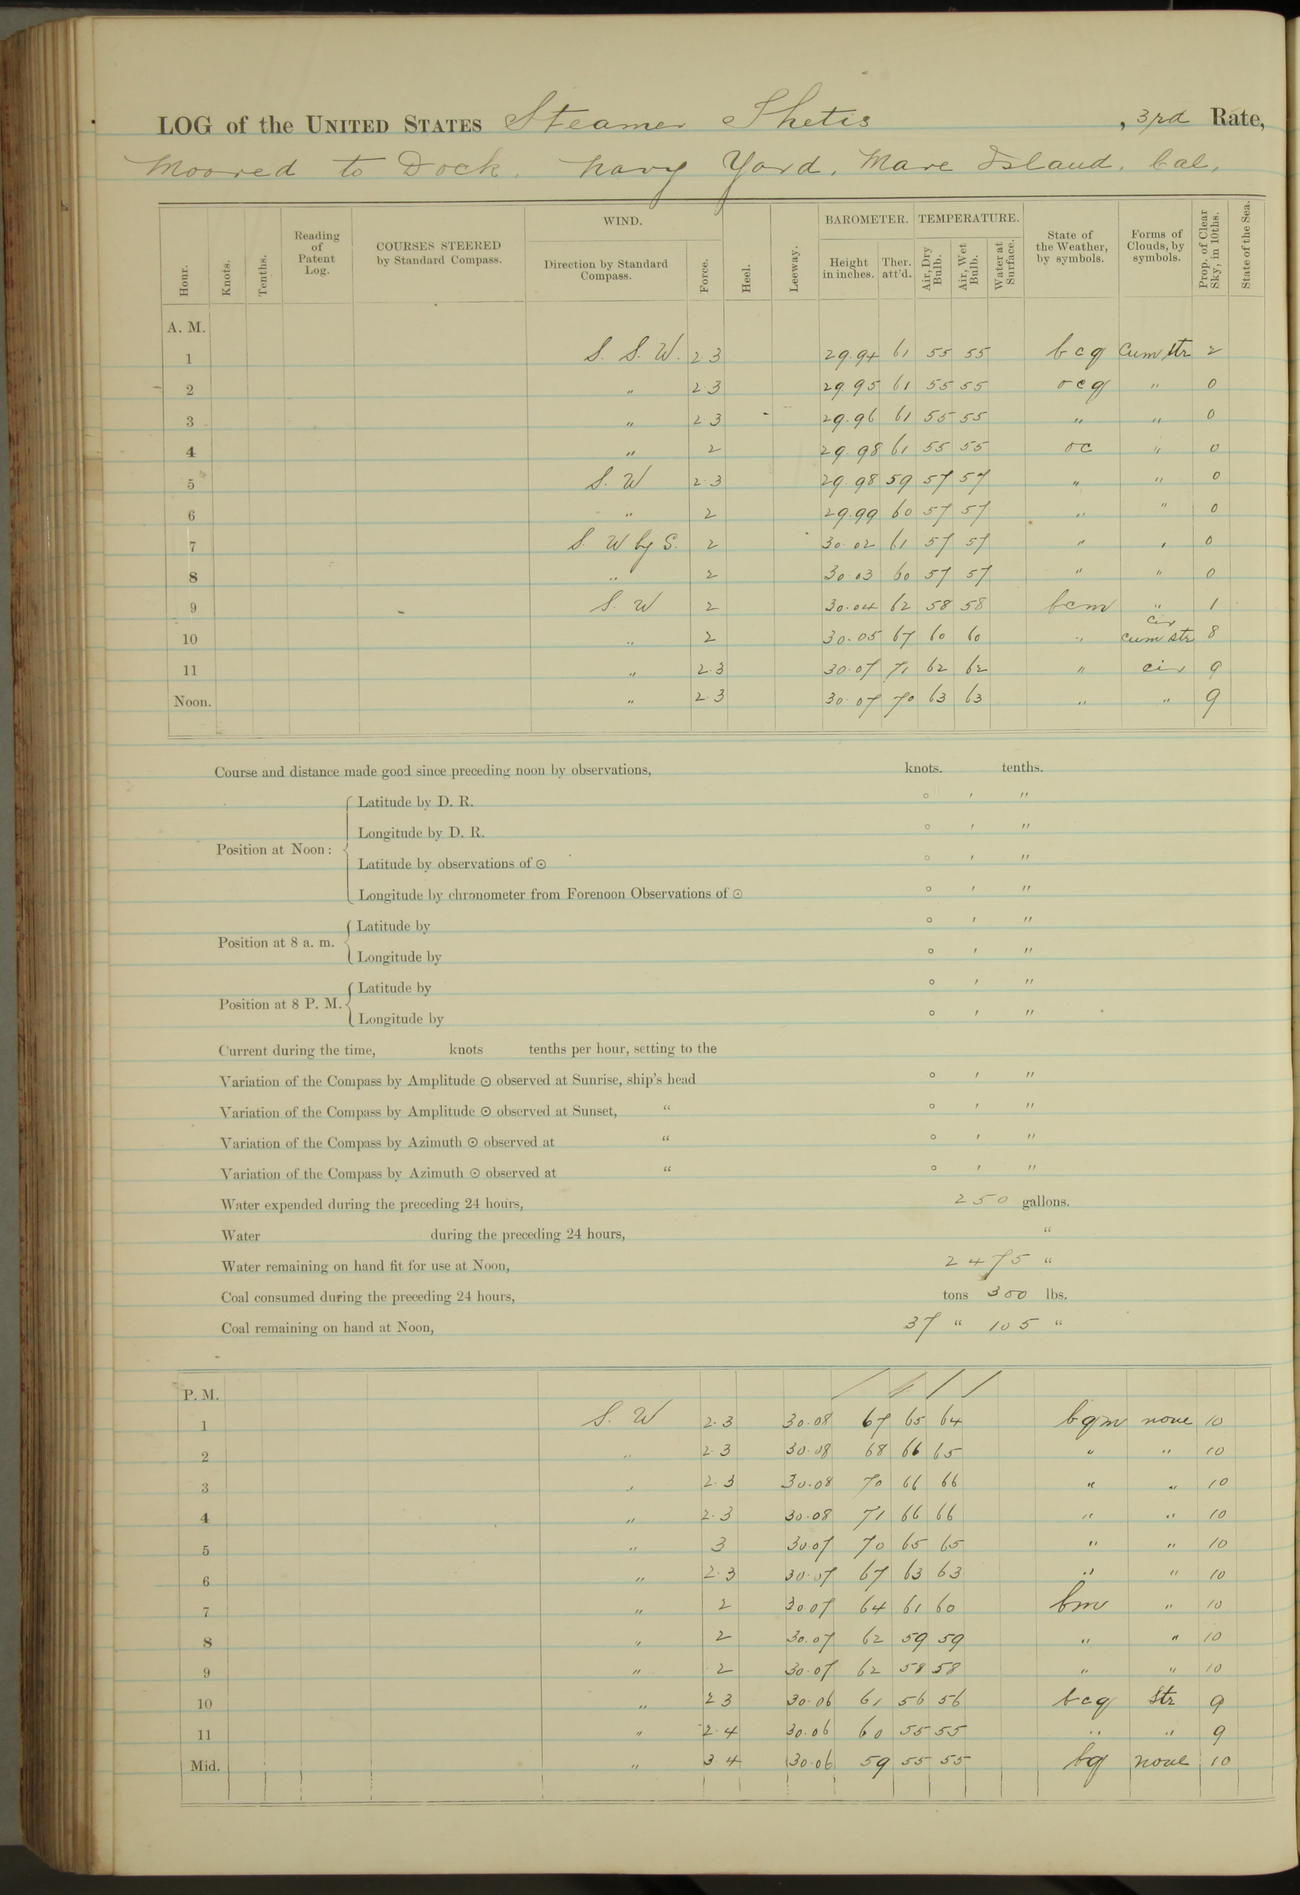 LOG of the UNITED STATES Steamer Thetis, 3rd Rate,
Moored to Dock. Navy Yard, Mare Island, Cal,
Hour. Knots. Tenths. Reading of Patent Log. COURSES STEERED by Standard Compass. WIND. Direction by Standard Compass. Force. Heel. Leeway. BAROMETER. Height in inches. Ther. att'd. TEMPERATURE. Air, Dry Bulb. Air, Wet Bulb. Water at Surface. State of the Weather, by symbols. Forms of Clouds, by symbols. Prop. of Clear Sky, in 10ths. State of the Sea.
A. M.
1 S. S. W. 2.3 29.94 61 55 55 bcq Cum Str 2
2 " 2.3 29.95 61 55 55 ocq " 0
3 " 2.3 29.96 61 55 55 " " 0
4 " 2 29.98 61 55 55 oc " 0
5 S. W 2.3 29.98 59 57 57 " " 0
6 " 2 29.99 60 57 57 " " 0
7 S. W by S. 2 30.02 61 57 57 " " 0
8 " 2 30.03 60 57 57 " " 0
9 S. W 2 30.04 62 58 58 bcm " 1
10 " 2 30.05 67 60 60 " cir cum str 8
11 " 2.3 30.07 71 62 62 " cir 9
Noon. " 2.3 30.07 70 63 63 " " 9
Course and distance made good since preceding noon by observations, knots. tenths.
Position at Noon: Latitude by D. R. ° ' "
Longitude by D. R. ° ' "
Latitude by observations of ☉ ° ' "
Longitude by chronometer from Forenoon Observations of ☉ ° ' "
Position at 8 a. m. Latitude by ° ' "
Longitude by ° ' "
Position at 8 P. M. Latitude by ° ' "
Longitude by ° ' "
Current during the time, knots tenths per hour, setting to the
Variation of the Compass by Amplitude ☉ observed at Sunrise, ship's head ° ' "
Variation of the Compass by Amplitude ☉ observed at Sunset, " ° ' "
Variation of the Compass by Azimuth ☉ observed at " ° ' "
Variation of the Compass by Azimuth ☉ observed at " ° ' "
Water expended during the preceding 24 hours, 250 gallons.
Water during the preceding 24 hours, "
Water remaining on hand fit for use at Noon, 2475 "
Coal consumed during the preceding 24 hours, tons 300 lbs.
Coal remaining on hand at Noon, 37 " 105 "
P. M.
1 S. W 2.3 30.08 67 65 64 bqm none 10
2 " 2.3 30.08 68 66 65 " " 10
3 " 2.3 30.08 70 66 66 " " 10
4 " 2.3 30.08 71 66 66 " " 10
5 " 3 30.07 70 65 65 " " 10
6 " 2.3 30.07 67 63 63 " " 10
7 " 2 30.07 64 61 60 bm " 10
8 " 2 30.07 62 59 59 " " 10
9 " 2 30.07 62 58 58 " " 10
10 " 2.3 30.06 61 56 56 bcq Str 9
11 " 2.4 30.06 60 55 55 " " 9
Mid. " 3.4 30.06 59 55 55 bq none 10